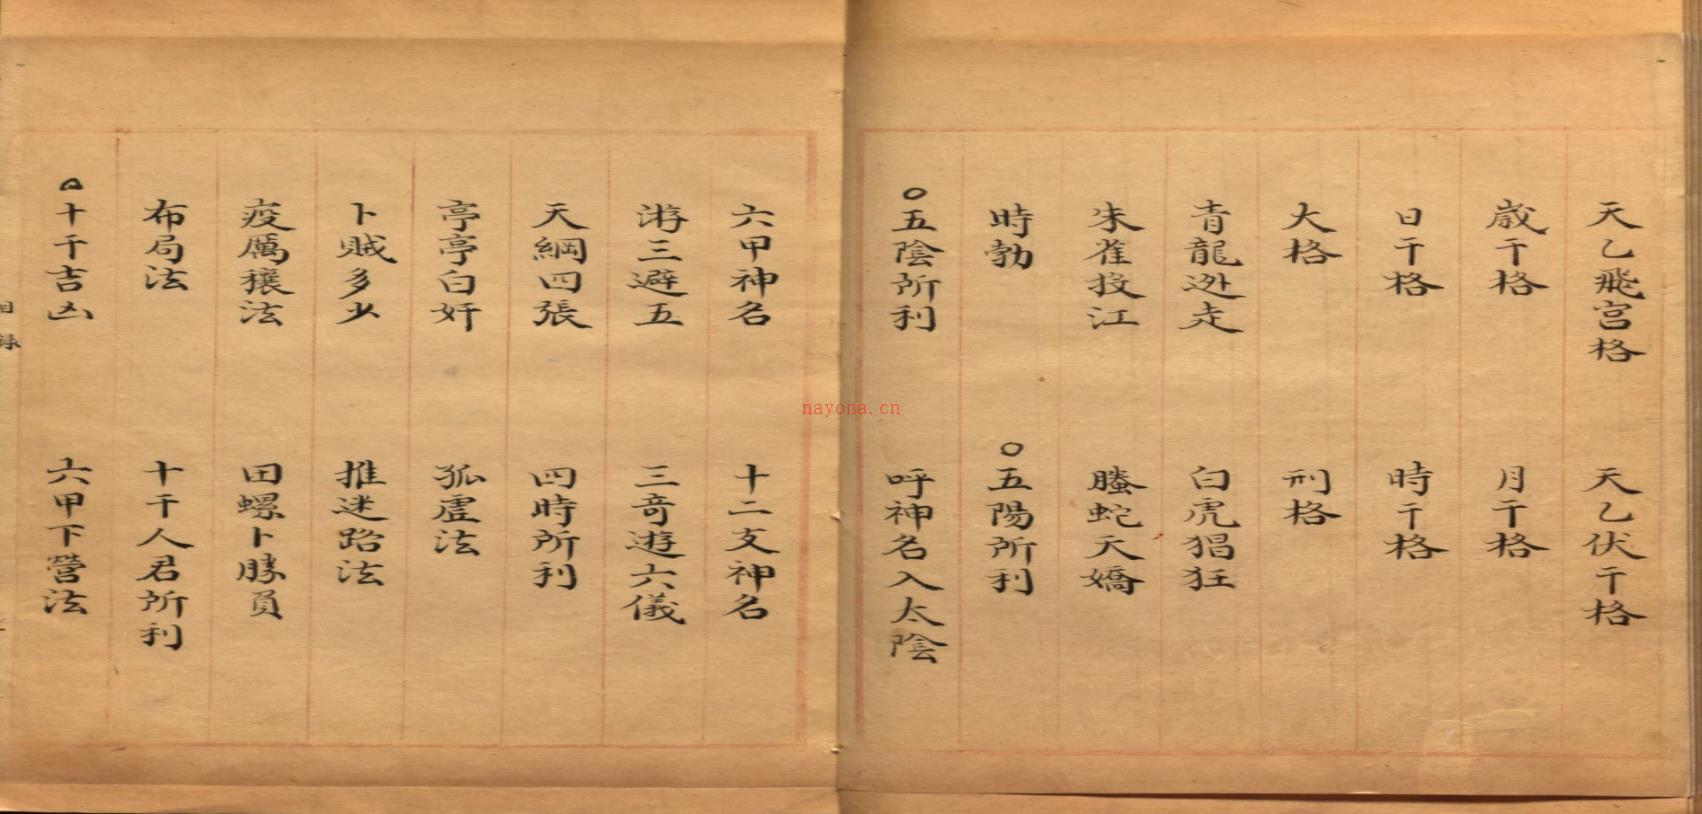 天乙飛宮格 天乙伏干格
歲干格 月干格
日干格 時干格
大格 刑格
青龍迯走 白虎猖狂
朱雀投江 螣蛇天嬌
時勃 〇五陽所利
〇五陰所利 呼神名入太陰
六甲神名 十二支神名
游三避五 三竒遊六儀
天綱四張 四時所利
亭亭白奸 孤虛法
卜賊多少 推迷路法
疫厲穰法 田螺卜勝負
布局法 十干人君所利
〇十干吉凶 六甲下營法
目錄
nayona.cn